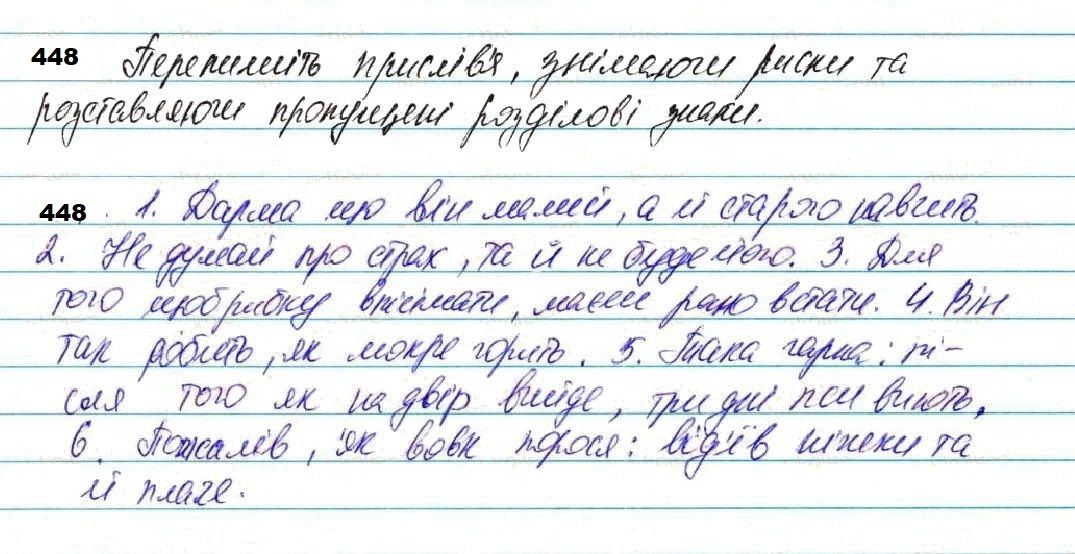 448 Перепишіть прислів'я, знімаючи риски та
розставляючи пропущені розділові знаки.
448. 1. Дарма що він малий, а й старого навчить.
2. Не думай про страх, та й не буде його. 3. Для
того щоб рибку впіймати, маєш рано встати. 4. Він
так робить, як мокре горить. 5. Така гарна: пі-
сля того як на двір вийде, три дні пси виють.
6. Пожалів, як вовк порося: від'їв ніжки та
й плаче.